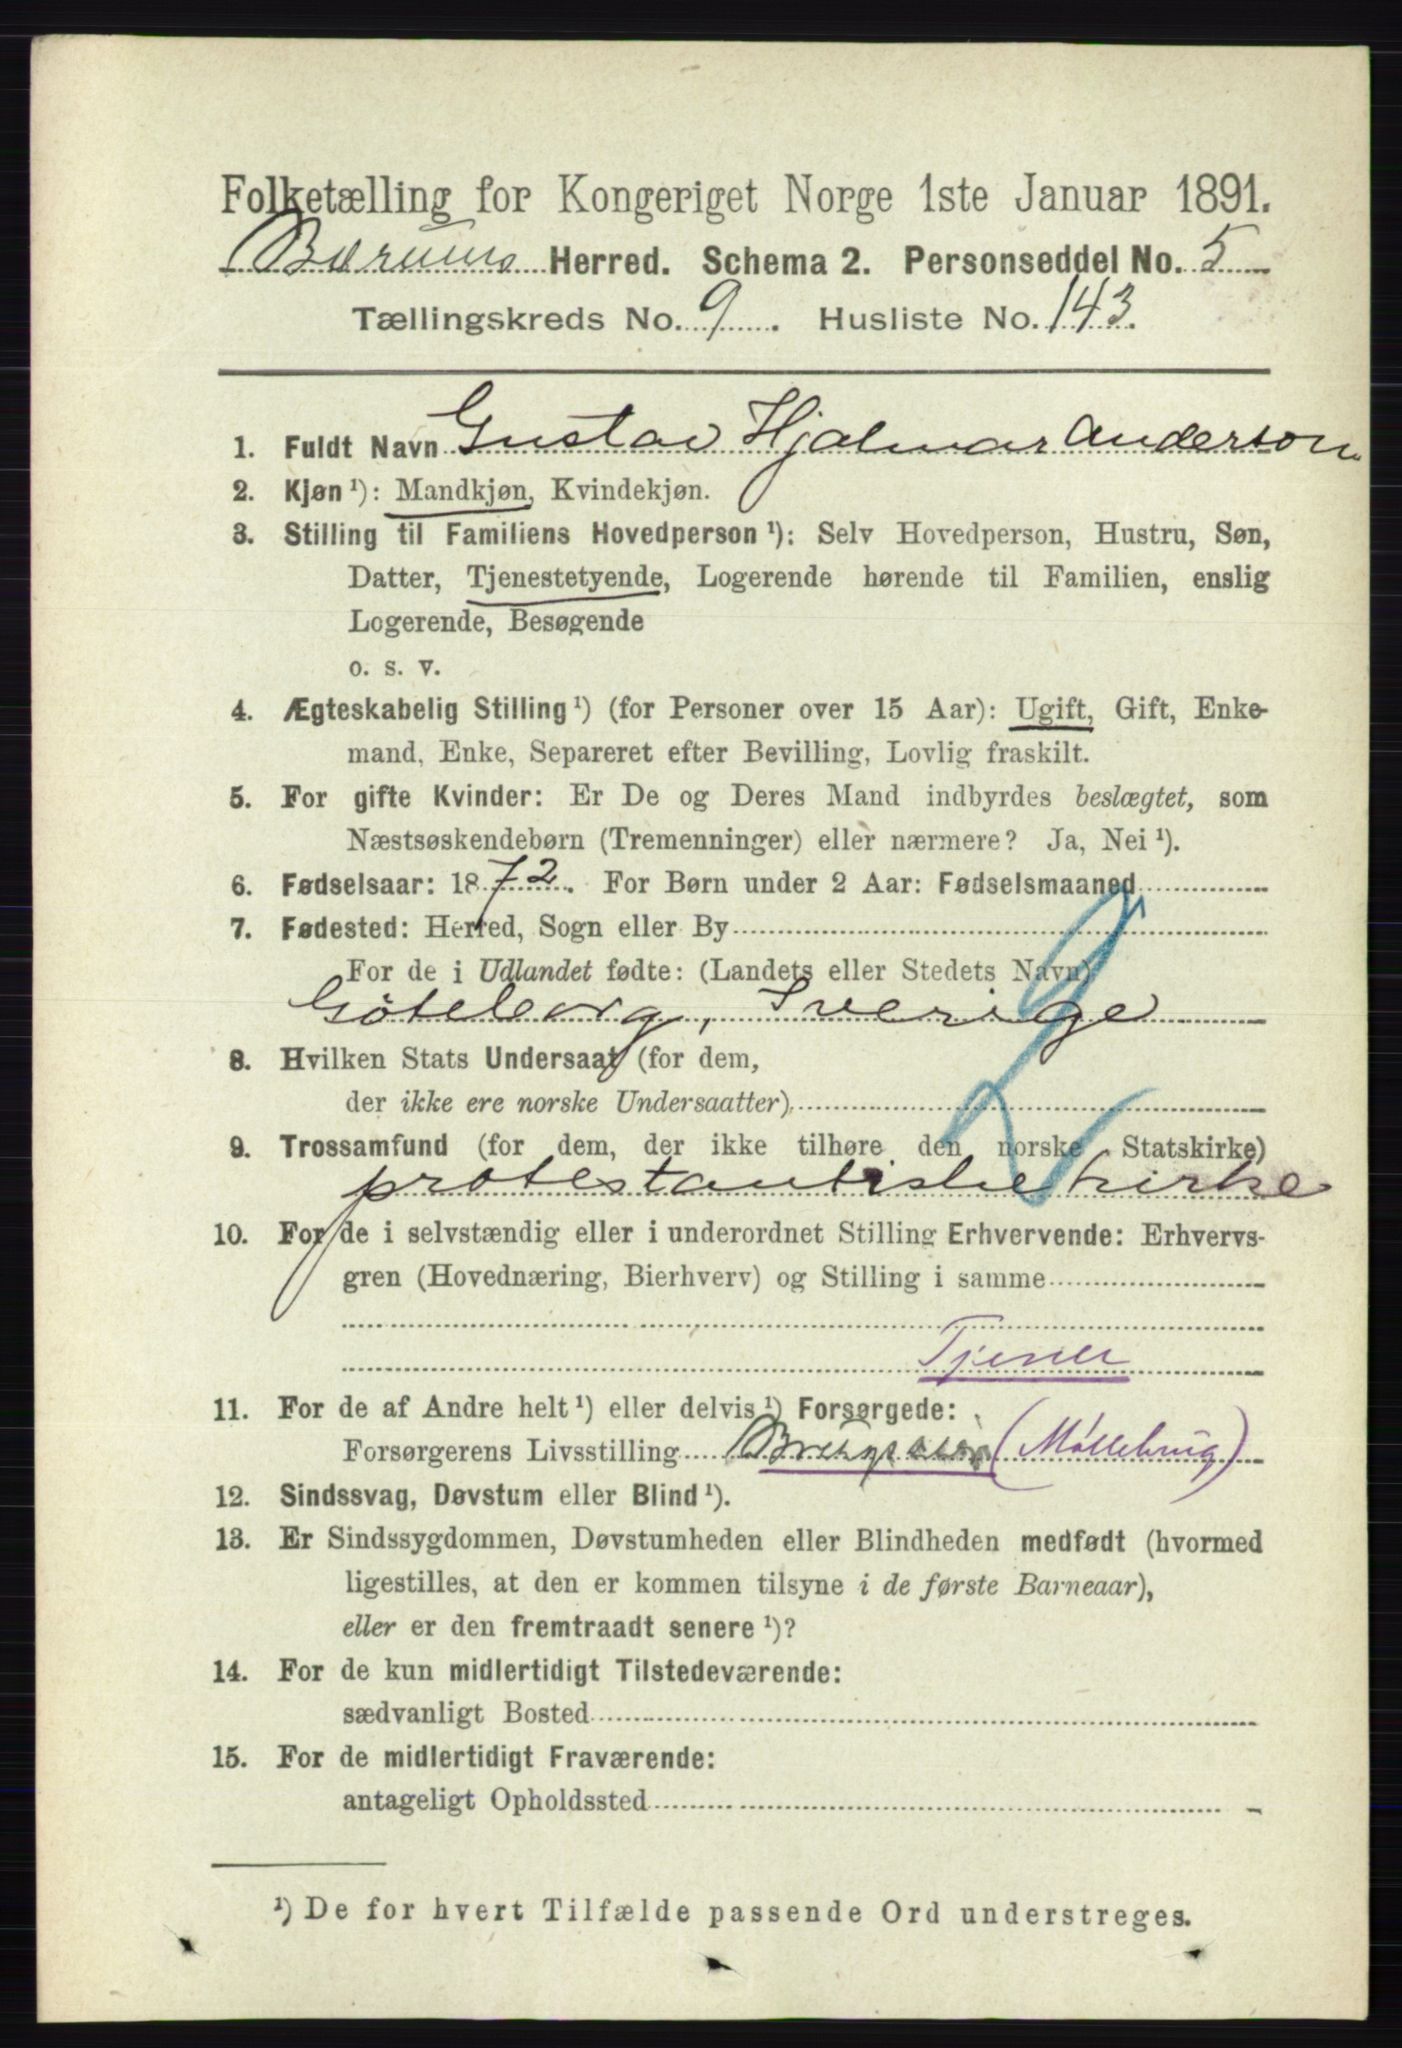 Folketælling for Kongeriget Norge 1ste Januar 1891.
Bærums Herred. Schema 2. Personseddel No. 5
Tællingskreds No. 9. Husliste No. 143.
1. Fuldt Navn Gustav Hjalmar Anderson
2. Kjøn ¹): Mandkjøn, Kvindekjøn.
3. Stilling til Familiens Hovedperson ¹): Selv Hovedperson, Hustru, Søn,
Datter, Tjenestetyende, Logerende hørende til Familien, enslig
Logerende, Besøgende
o. s. v.
4. Ægteskabelig Stilling ¹) (for Personer over 15 Aar): Ugift, Gift, Enke-
mand, Enke, Separeret efter Bevilling, Lovlig fraskilt.
5. For gifte Kvinder: Er De og Deres Mand indbyrdes beslægtet, som
Næstsøskendebørn (Tremenninger) eller nærmere? Ja, Nei ¹).
6. Fødselsaar: 1872. For Børn under 2 Aar: Fødselsmaaned
7. Fødested: Herred, Sogn eller By
For de i Udlandet fødte: (Landets eller Stedets Navn)
Gøteborg, Sverige
8. Hvilken Stats Undersaat (for dem,
der ikke ere norske Undersaatter)
9. Trossamfund (for dem, der ikke tilhøre den norske Statskirke)
protestantiske kirke
10. For de i selvstændig eller i underordnet Stilling Erhvervende: Erhvervs-
gren (Hovednæring, Bierhverv) og Stilling i samme
Tjener
11. For de af Andre helt ¹) eller delvis ¹) Forsørgede:
Forsørgerens Livsstilling (Møllebrug)
12. Sindssvag, Døvstum eller Blind ¹).
13. Er Sindssygdommen, Døvstumheden eller Blindheden medfødt (hvormed
ligestilles, at den er kommen tilsyne i de første Barneaar),
eller er den fremtraadt senere ¹)?
14. For de kun midlertidigt Tilstedeværende:
sædvanligt Bosted
15. For de midlertidigt Fraværende:
antageligt Opholdssted
¹) De for hvert Tilfælde passende Ord understreges.